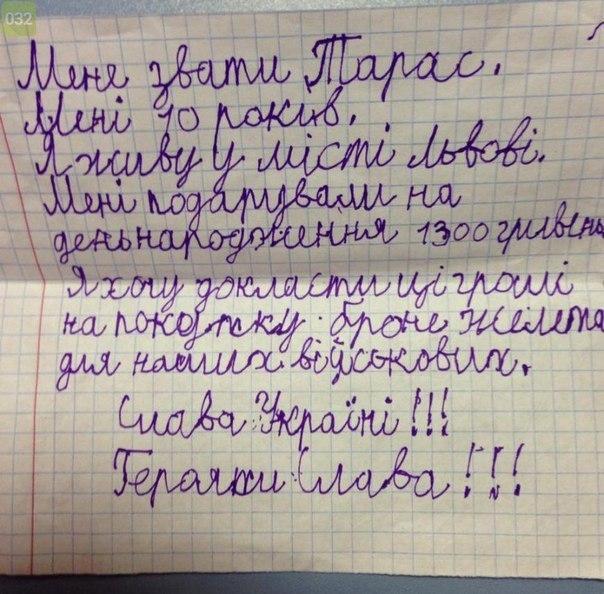 032
Мене звати Тарас.
Мені 10 років.
Я живу у місті Львові.
Мені подарували на
день народження 1300 гривень
Я хочу докласти ці гроші
на броне жилета
для наших військових.
Слава Україні!!!
Слава!!!